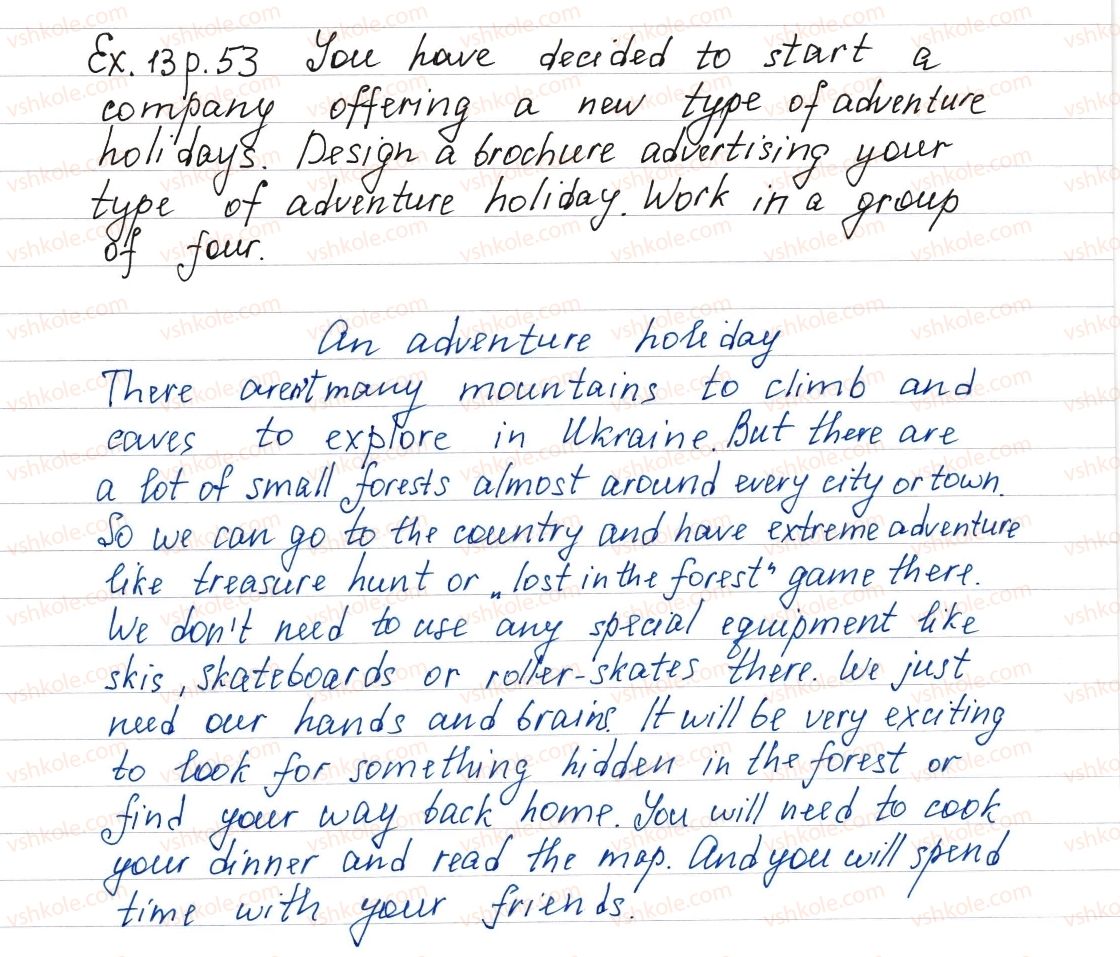 Ex. 13 p. 53 You have decided to start a
company offering a new type of adventure
holidays. Design a brochure advertising your
type of adventure holiday. Work in a group
of four.
An adventure holiday
There aren't many mountains to climb and
caves to explore in Ukraine. But there are
a lot of small forests almost around every city or town.
So we can go to the country and have extreme adventure
like treasure hunt or „lost in the forest" game there.
We don't need to use any special equipment like
skis, skateboards or roller-skates there. We just
need our hands and brains. It will be very exciting
to look for something hidden in the forest or
find your way back home. You will need to cook
your dinner and read the map. And you will spend
time with your friends.